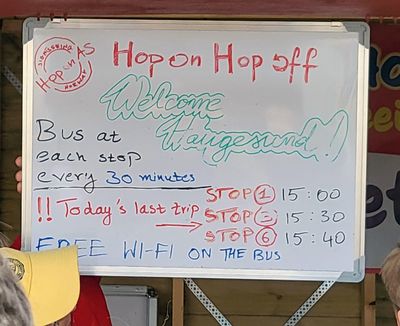 SIGHTSEEING AS
Hop on
NORWAY
Hop on Hop off
Welcome
Haugesund!
Bus at
each stop
every 30 minutes
!! Today's last trip
STOP 1 15:00
STOP 3 15:30
STOP 6 15:40
FREE WI-FI ON THE BUS